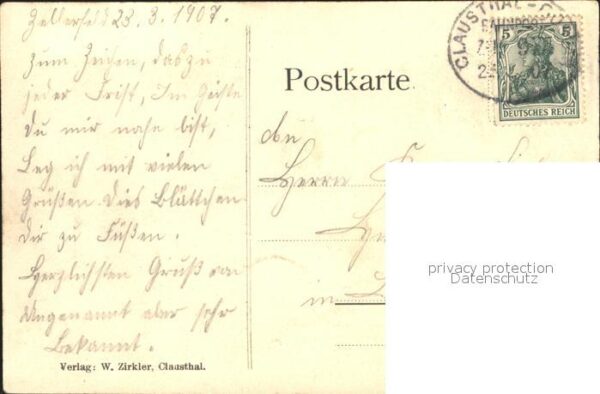 Zellerfeld 23. 3. 1907.
Zum Zeichen, daß zu
jeder Frist, Im Geiste
Du mir nahe bist,
Leg ich mit vielen
Grüßen Dies Blättchen
dir zu Füßen.
Herzlichsten Gruß von
Ungenannt aber sehr
Bekannt.
Verlag: W. Zirkler, Clausthal.
Postkarte
CLAUSTHAL
5 5
DEUTSCHES REICH
An
Herrn
in
privacy protection
Datenschutz